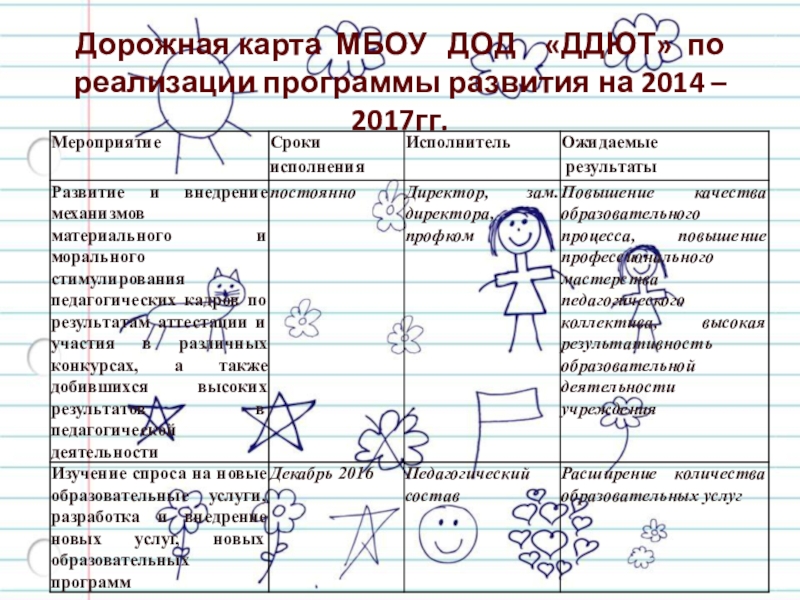 Дорожная карта МБОУ ДОД «ДДЮТ» по
реализации программы развития на 2014 –
2017гг.
Мероприятие
Сроки
исполнения
Исполнитель
Ожидаемые
результаты
Развитие и внедрение
механизмов
материального и
морального
стимулирования
педагогических кадров по
результатам аттестации и
участия в различных
конкурсах, а также
добившихся высоких
результатов в
педагогической
деятельности
постоянно
Директор, зам.
директора,
профком
Повышение качества
образовательного
процесса, повышение
профессионального
мастерства
педагогического
коллектива, высокая
результативность
образовательной
деятельности
учреждения
Изучение спроса на новые
образовательные услуги,
разработка и внедрение
новых услуг, новых
образовательных
программ
Декабрь 2016
Педагогический
состав
Расширение количества
образовательных услуг